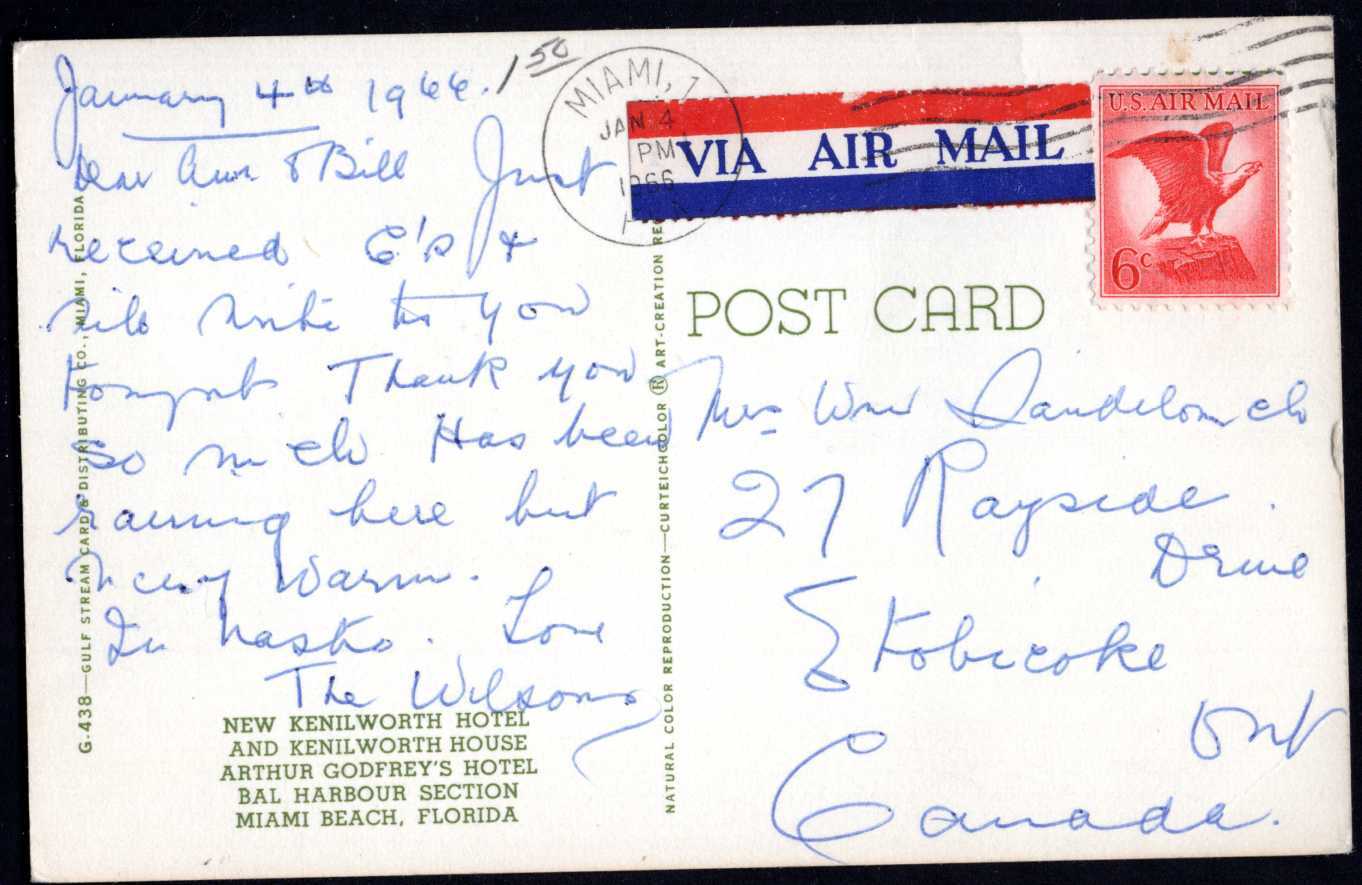 January 4th 1966.
1 50
Dear Ann & Bill Just
received E's &
will write to you
Tonight Thank you
so much Has been
raining here but
nice & Warm.
In haste. Love
The Wilsons
NEW KENILWORTH HOTEL
AND KENILWORTH HOUSE
ARTHUR GODFREY'S HOTEL
BAL HARBOUR SECTION
MIAMI BEACH, FLORIDA
G-438—GULF STREAM CARD & DISTRIBUTING CO., MIAMI, FLORIDA
NATURAL COLOR REPRODUCTION—CURTEICHCOLOR ® ART-CREATION RE
MIAMI,
JAN 4
PM
1966
VIA AIR MAIL
U.S. AIR MAIL
6c
POST CARD
Mrs Wm
27 Rayside
Drive
Etobicoke
Ont
Canada.